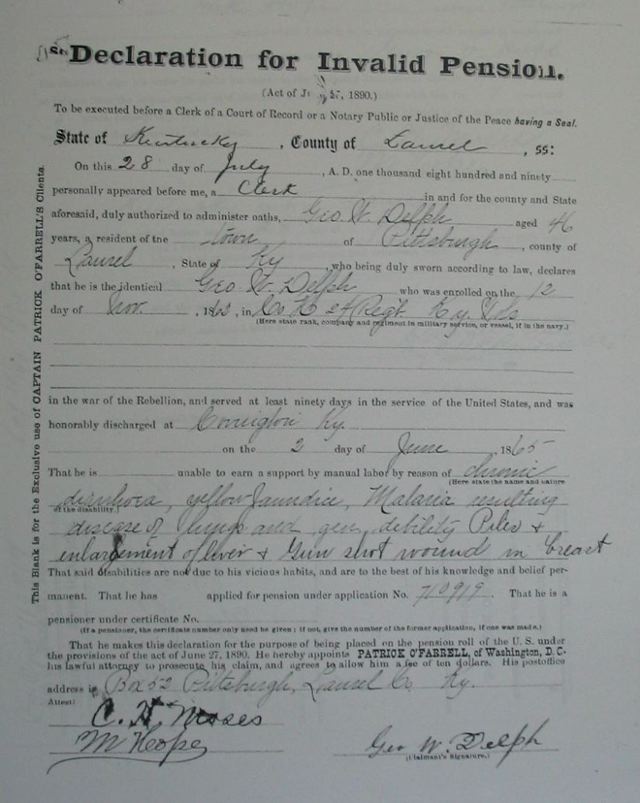 Declaration for Invalid Pension.
(Act of June 27, 1890.)
To be executed before a Clerk of a Court of Record or a Notary Public or Justice of the Peace having a Seal.
State of Kentucky, County of Laurel, ss:
On this 28 day of July, A. D. one thousand eight hundred and ninety
personally appeared before me, a Clerk in and for the county and State
aforesaid, duly authorized to administer oaths, Geo. W. Delph aged 46
years, a resident of the town of Pittsburgh, county of
Laurel, State of Ky, who being duly sworn according to law, declares
that he is the identical Geo W. Delph who was enrolled on the 12
day of Nov., 186, in Co Regt. Ky.
(Here state rank, company and regiment in military service, or vessel, if in the navy.)
in the war of the Rebellion, and served at least ninety days in the service of the United States, and was
honorably discharged at Covington Ky.
on the 2 day of June, 1865
That he is unable to earn a support by manual labor by reason of chronic
(Here state the name and nature
of the disability.)
diarrhoea, yellow Jaundice, Malaria resulting
disease of lungs and gen. debility Piles &
enlargement of liver & Gun shot wound in breast
That said disabilities are not due to his vicious habits, and are to the best of his knowledge and belief per-
manent. That he has applied for pension under application No. That he is a
pensioner under certificate No.
(If a pensioner, the certificate number only need be given; if not, give the number of the former application, if one was made.)
That he makes this declaration for the purpose of being placed on the pension roll of the U. S. under
the provisions of the act of June 27, 1890. He hereby appoints PATRICK O'FARRELL, of Washington, D. C.
his lawful attorney to prosecute his claim, and agrees to allow him a fee of ten dollars. His postoffice
address is Box 52 Pittsburgh, Laurel Co Ky.
Attest:
C. H. Moses
M Hope
Geo W. Delph
(Claimant's Signature.)
This Blank is for the Exclusive use of CAPTAIN PATRICK O'FARRELL'S Clients.